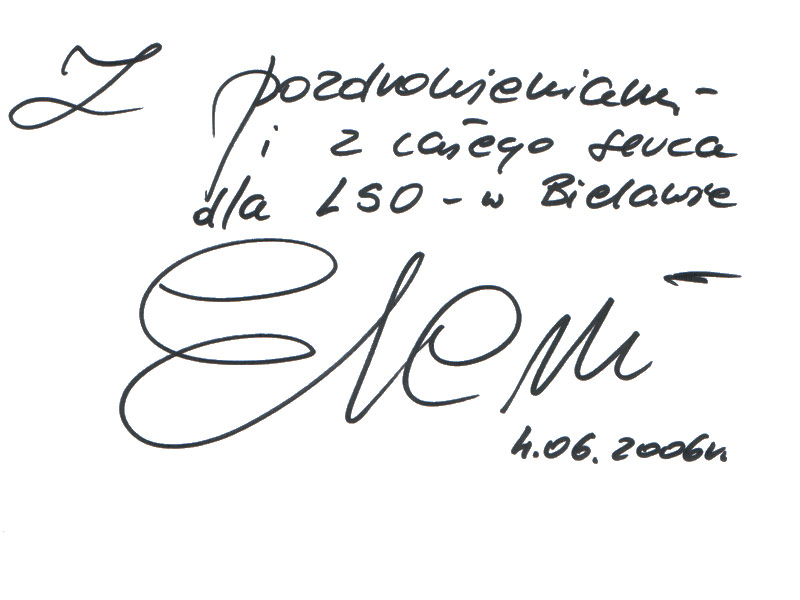 Z pozdrowieniami -
i z całego serca
dla LSO - w Bielawie
Eleni
4.06.2006r.